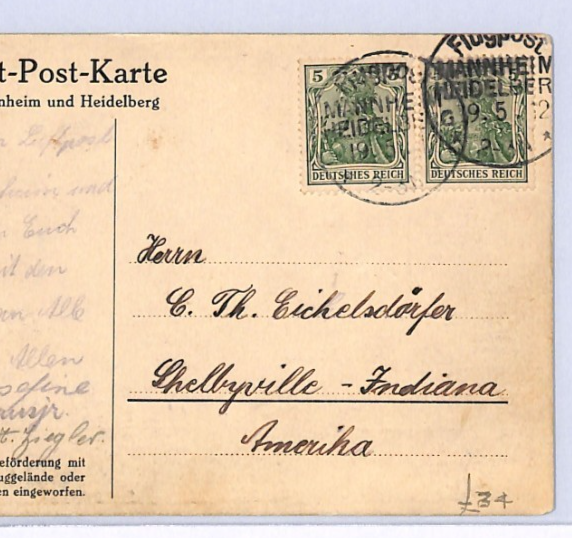 t-Post-Karte
nheim und Heidelberg
5
5
DEUTSCHES REICH
DEUTSCHES REICH
Flugpost
MANNHEIM
HEIDELBERG
19
Flugpost
MANNHEIM
HEIDELBER
19. 5. 12
Luftpost
und
Euch
it den
Alle
Allen
sefine
t. Ziegler.
eförderung mit
uggelände oder
en eingeworfen.
Herrn
C. Th. Eichelsdörfer
Shelbyville - Indiana
Amerika
£34